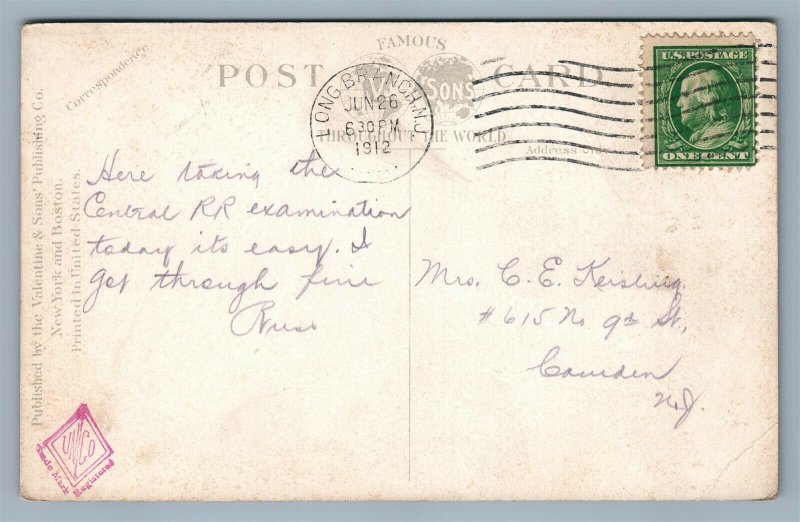 FAMOUS
POST CARD
SONS
THROUGHOUT THE WORLD
Correspondence
Address
LONG BRANCH, N.J.
JUN 26
630 PM
1912
U.S. POSTAGE
ONE CENT
Here taking the
Central RR examination
today its easy. I
get through fine
Mrs. C. E. Keisling
#615 No 9th St,
Camden
N.J.
Published by the Valentine & Sons' Publishing Co.
New York and Boston.
Printed in United States.
Trade Mark
Registered